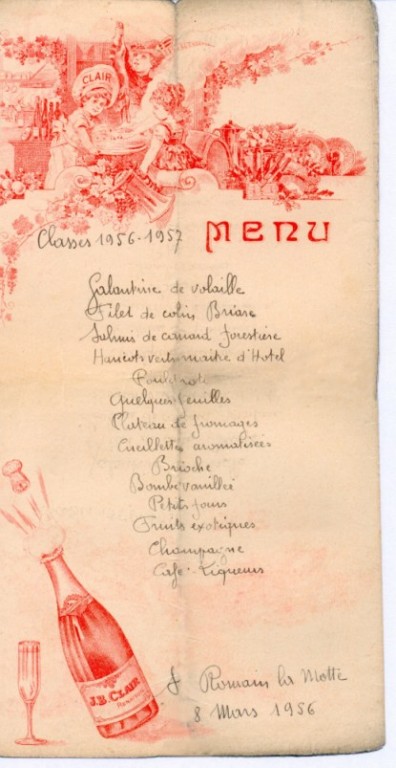 CLAIR
Classes 1956-1957
MENU
Galantine de volaille
Filet de colin Briare
Salmis de canard forestière
Haricots verts maitre d'Hotel
Poulet roti
Quelques feuilles
Plateau de fromages
Cueillettes aromatisées
Brioche
Bombe vanillée
Petits fours
Fruits exotiques
Champagne
Café - Liqueurs
J.B. CLAIR
Romain la Motte
8 Mars 1956